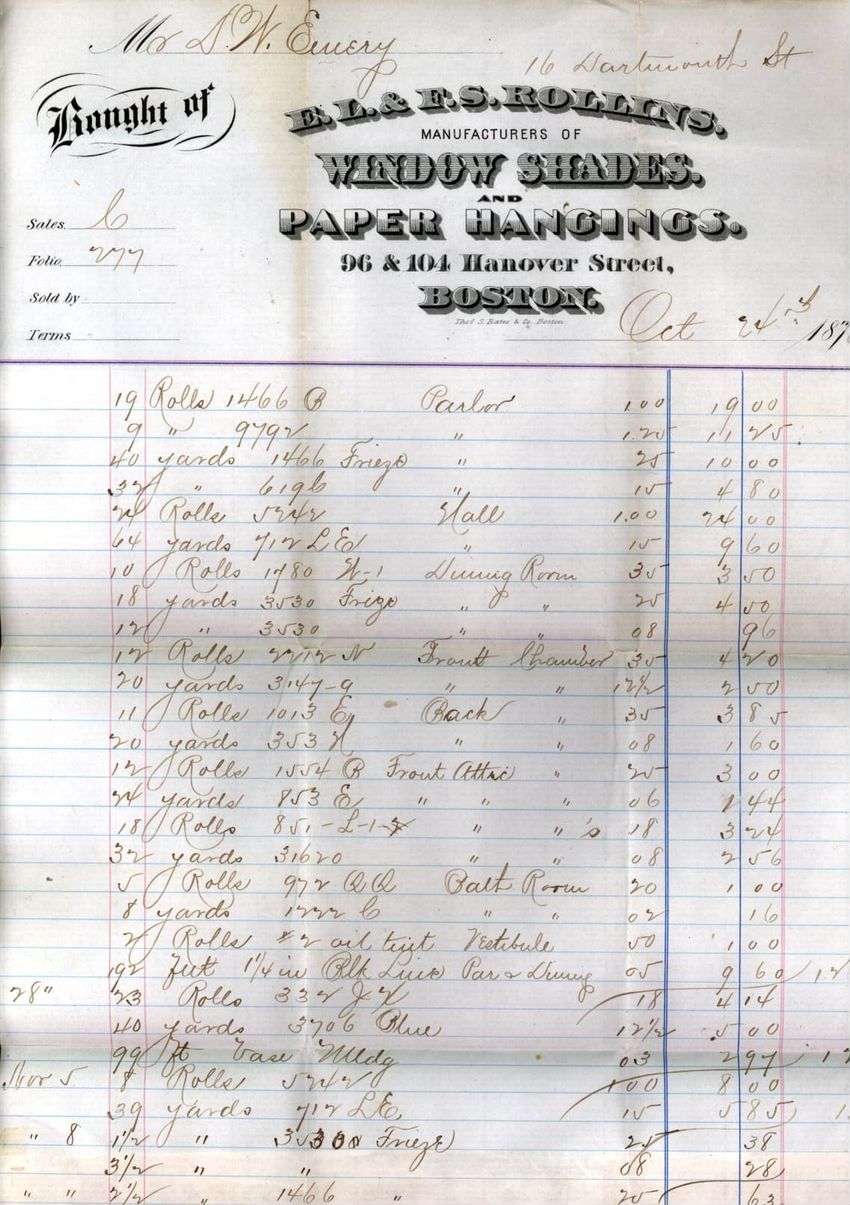 Mr D. W. Emery
16 Dartmouth St
Bought of
E. L. & F. S. ROLLINS.
MANUFACTURERS OF
WINDOW SHADES.
AND
PAPER HANGINGS.
96 & 104 Hanover Street,
BOSTON.
Thos S. Bates & Co. Boston.
Sales C
Folio 277
Sold by
Terms
Oct 24th 187
19 Rolls 1466 B Parlor 1.00 19 00
9 " 9792 " 1.25 11 25
40 yards 1466 Frieze " 25 10 00
32 " 6196 " 15 4 80
24 Rolls 5242 Hall 1.00 24 00
64 yards 712 L E " 15 9 60
10 Rolls 1780 W-1 Dining Room 35 3 50
18 yards 3530 Frieze " " 25 4 50
12 " 3530 " " 08 96
12 Rolls 2212 N Front Chamber 35 4 20
20 yards 3147-9 " " 12 1/2 2 50
11 Rolls 1013 E Back " 35 3 85
20 yards 353 " " 08 1 60
12 Rolls 1554 B Front Attic " 25 3 00
24 yards 853 E " " " 06 1 44
18 Rolls 851-L-1 " " 's 18 3 24
32 yards 31620 " " 08 2 56
5 Rolls 972 QQ Bath Room 20 1 00
8 yards 1222 C " " 02 16
2 Rolls #2 oil tint Vestibule 50 1 00
192 Feet 1 1/4 in Blk Line Par & Dining 05 9 60 12
28" 23 Rolls 332 18 4 14
40 yards 3706 Blue 12 1/2 5 00
99 ft Base Mldg 03 2 97 1
Nov 5 8 Rolls 5242 1 00 8 00
39 yards 712 L E 15 5 85 1
" 8 1 1/2 " 3530 Frieze 25 38
3 1/2 " " 08 28
" " 2 1/2 " 1466 " 25 63